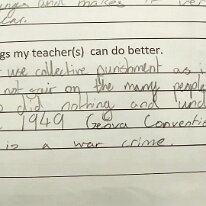 and makes it ver
ar.
gs my teacher(s) can do better.
use collective punishment as i
not fair on the many people
did nothing and und
1949 Genva Conventi
is a war crime.